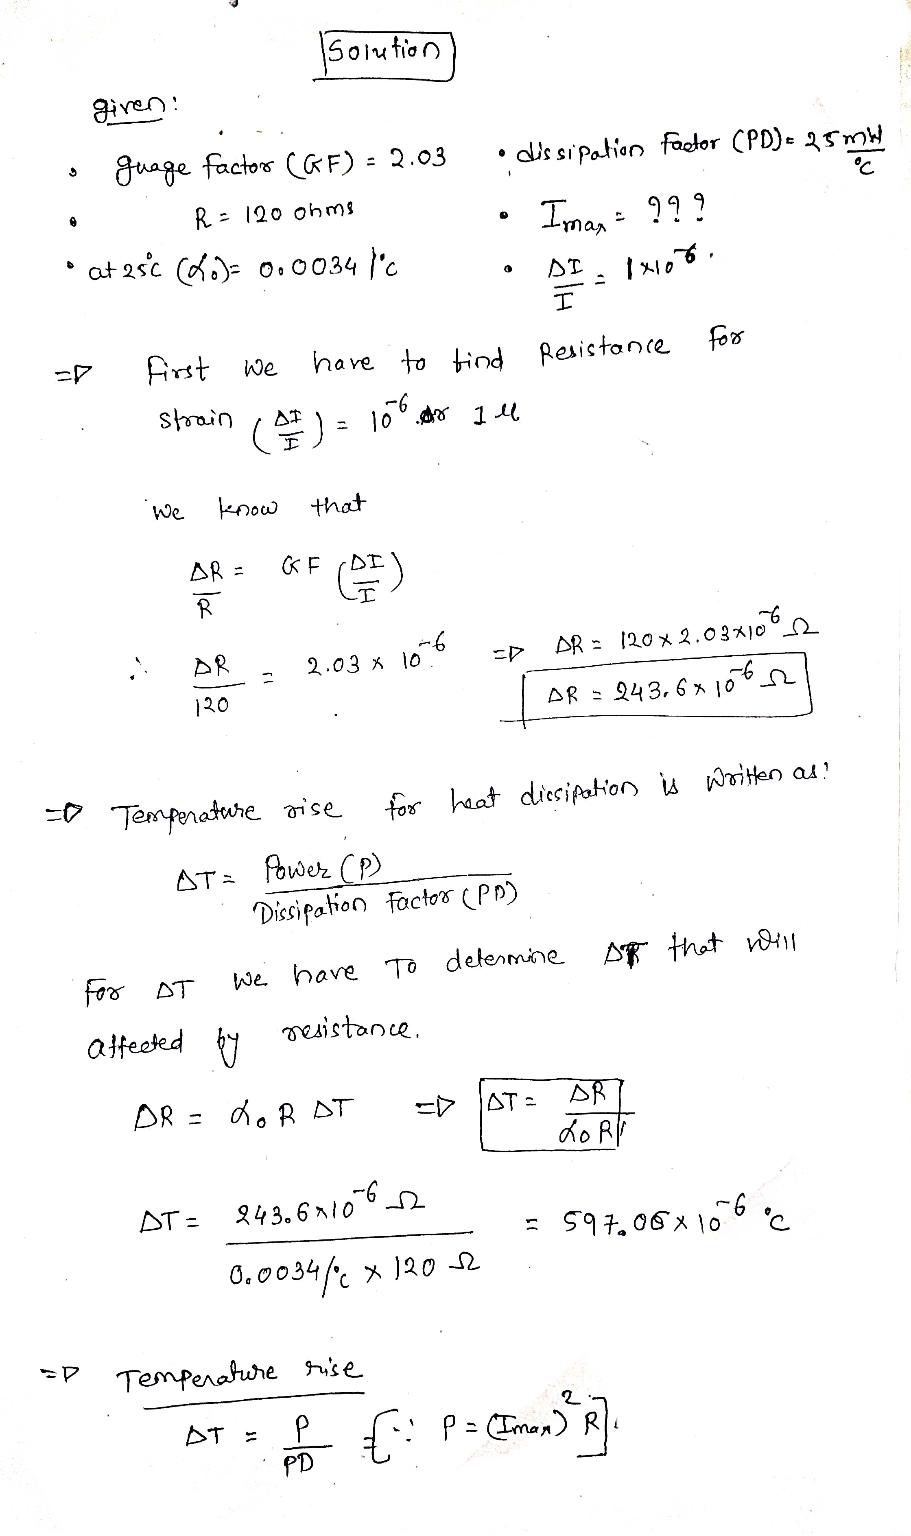 Solution
given:
• guage factor (GF) = 2.03
• dissipation factor (PD) = 25 mW/°C
• R = 120 ohms
• Imax = ???
• at 25°C (α₀) = 0.0034 /°C
• ΔI/I = 1×10⁻⁶.
=> first we have to find Resistance for
strain (ΔI/I) = 10⁻⁶ or 1 μ
we know that
ΔR/R = GF (ΔI/I)
∴ ΔR/120 = 2.03 × 10⁻⁶. => ΔR = 120 × 2.03×10⁻⁶ Ω
ΔR = 243.6 × 10⁻⁶ Ω
=> Temperature rise for heat dissipation is written as:
ΔT = Power (P)/Dissipation factor (PD)
For ΔT we have To determine ΔT that will
affected by resistance.
ΔR = α₀ R ΔT => ΔT = ΔR/α₀R
ΔT = 243.6×10⁻⁶ Ω/0.0034/°C × 120 Ω = 597.06 × 10⁻⁶ °C
=> Temperature rise
ΔT = P/PD {∵ P = (Imax)² R].